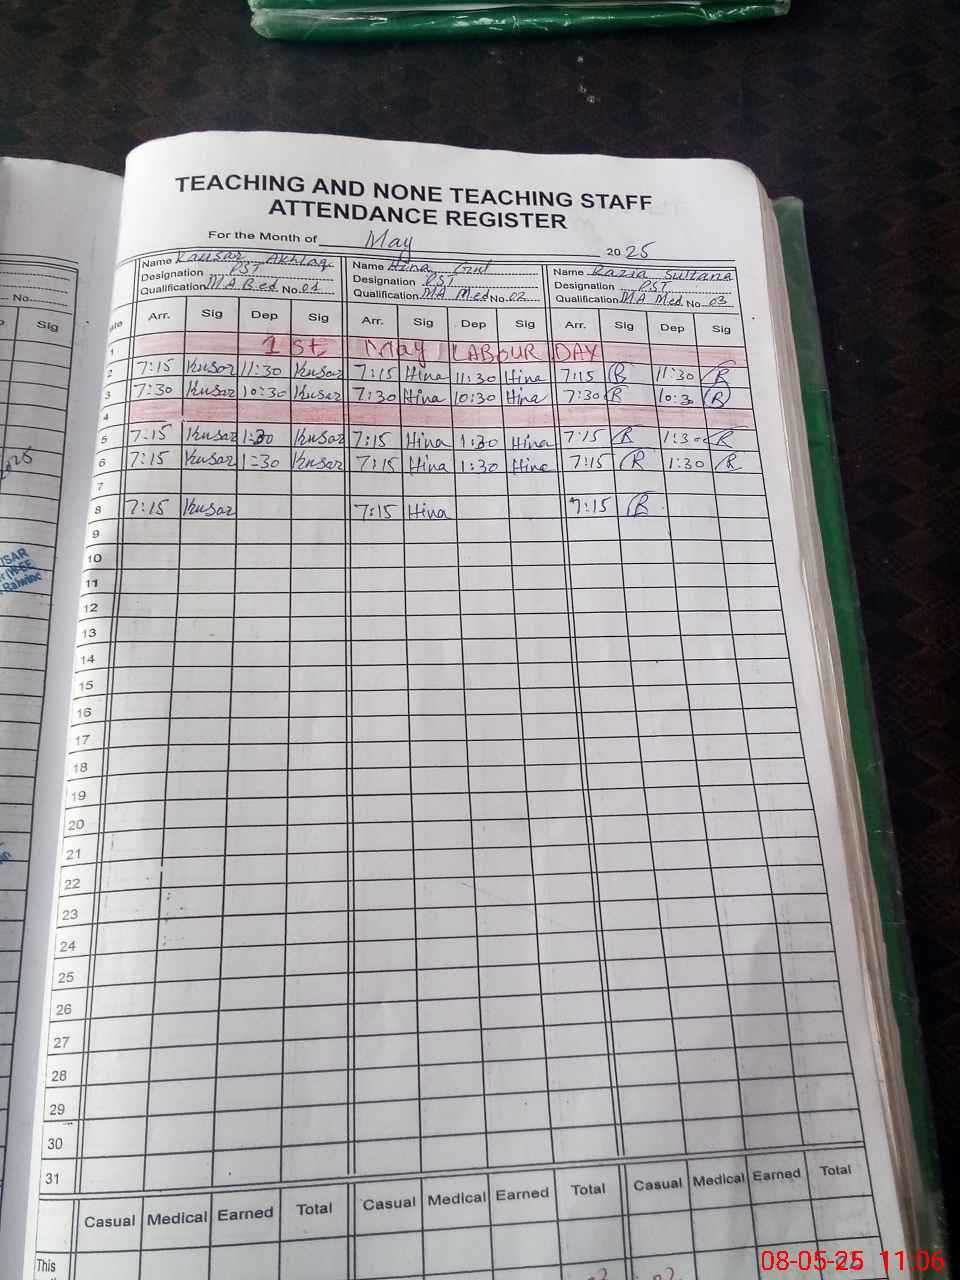 TEACHING AND NONE TEACHING STAFF
ATTENDANCE REGISTER
For the Month of May 2025
Name Kausar Akhlaq Name Hina Gul Name Razia Sultana
Designation PST Designation PST Designation PST
Qualification M A B.ed No.01 Qualification MA M.ed No.02 Qualification MA Med No.03
No.
Sig
Arr. Sig Dep Sig Arr. Sig Dep Sig Arr. Sig Dep Sig
1 1st May LABOUR DAY
2 7:15 Kusar 11:30 Kusar 7:15 Hina 11:30 Hina 7:15 R 11:30 R
3 7:30 Kusar 10:30 Kusar 7:30 Hina 10:30 Hina 7:30 R 10:30 R
4
5 7:15 Kusar 1:30 Kusar 7:15 Hina 1:30 Hina 7:15 R 1:30 R
6 7:15 Kusar 1:30 Kusar 7:15 Hina 1:30 Hina 7:15 R 1:30 R
7
8 7:15 Kusar 7:15 Hina 7:15 R
9
10
11
12
13
14
15
16
17
18
19
20
21
22
23
24
25
26
27
28
29
30
31
Casual Medical Earned Total Casual Medical Earned Total Casual Medical Earned Total
This
08-05-25 11:06